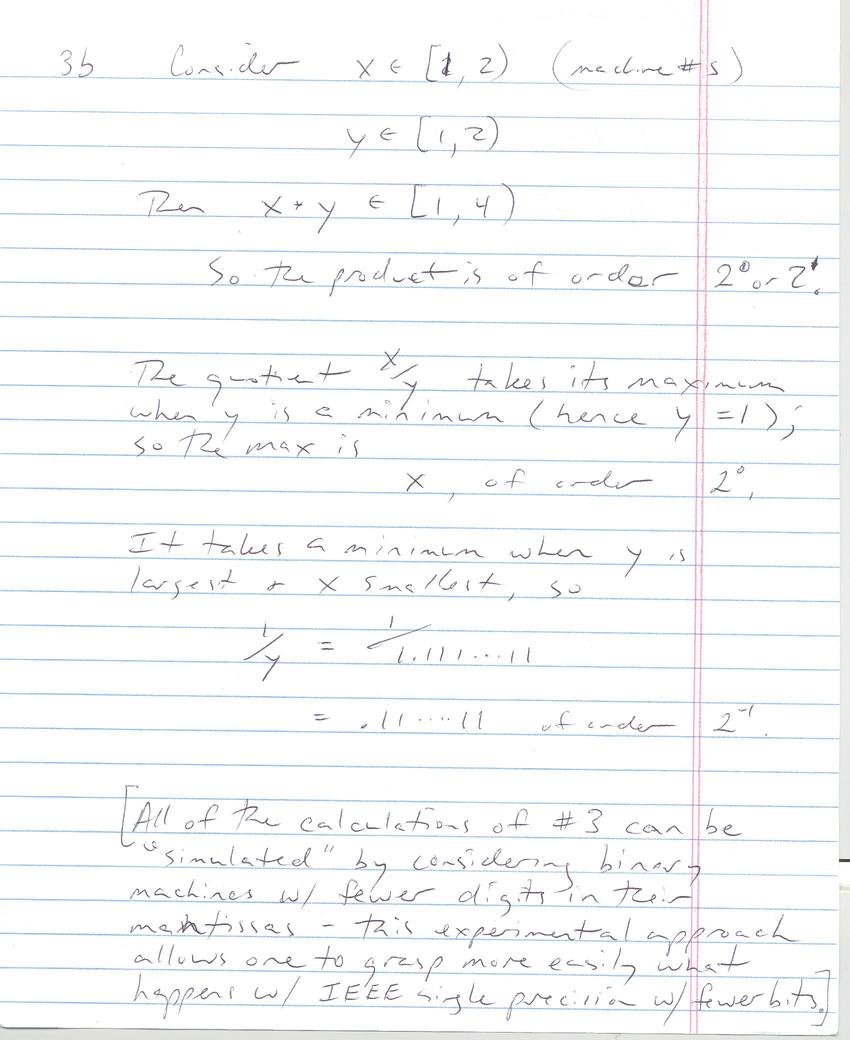 3b Consider x ∈ [1, 2) (machine #s)
y ∈ [1, 2)
Then x * y ∈ [1, 4)
So the product is of order 2⁰ or 2¹.
The quotient x/y takes its maximum
when y is a minimum (hence y = 1);
so the max is
x, of order 2⁰.
It takes a minimum when y is
largest & x smallest, so
1/y = 1/1.111...11
= .11....11 of order 2⁻¹.
[All of the calculations of #3 can be
"simulated" by considering binary
machines w/ fewer digits in their
mantissas - this experimental approach
allows one to grasp more easily what
happens w/ IEEE single precision w/ fewer bits.]